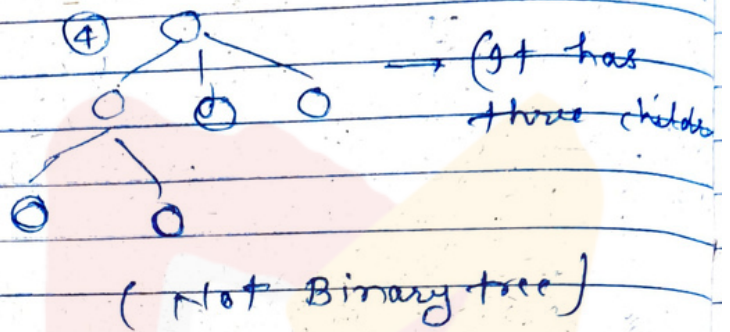 ④
→ (It has
three childs
(Not Binary tree)